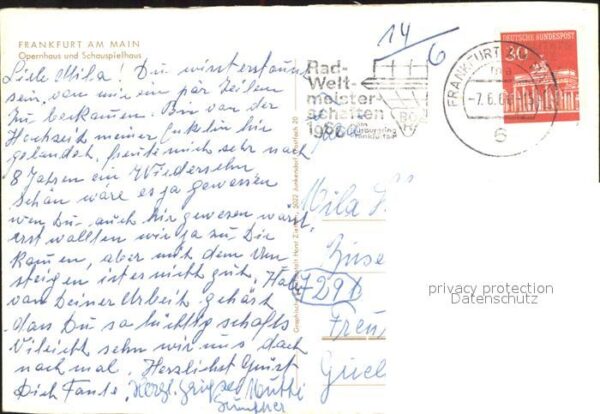 FRANKFURT AM MAIN
Opernhaus und Schauspielhaus
Liebe Mila! Du wirst erstaunt
sein, von mir ein par Zeilen
zu bekomen. Bin vor der
Hochzeit meiner hir
gelandet, freute mich sehr nach
8 Jahren ein Wiedersehn
Schön wäre es ja gewessen
wen Du auch hir gewesen wärst,
erst wollten wir ja zu Dir
komen, aber mit dem Um
steigen ist es nicht gut. Habe
von Deiner Arbeit gehört
dass Du so tüchtig schaffs
Vileicht sehn wir uns doch
noch mal. Herzlichst Grüst
Dich Tante. Herzl. Mutti
14/6
Rad-
Welt-
meister-
schaften
1966
Nürburgring
Frankfurt
FRANKFURT
-7.6.66
6
DEUTSCHE BUNDESPOST
30
Mila
7290
Freu
privacy protection
Datenschutz